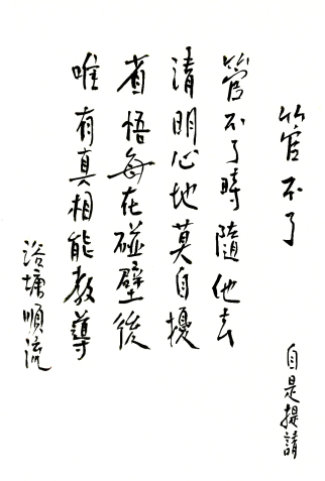 管不了
自是提請
管不了時隨他去
清明心地莫自擾
省悟每在碰壁後
唯有真相能教導
浴墉順流